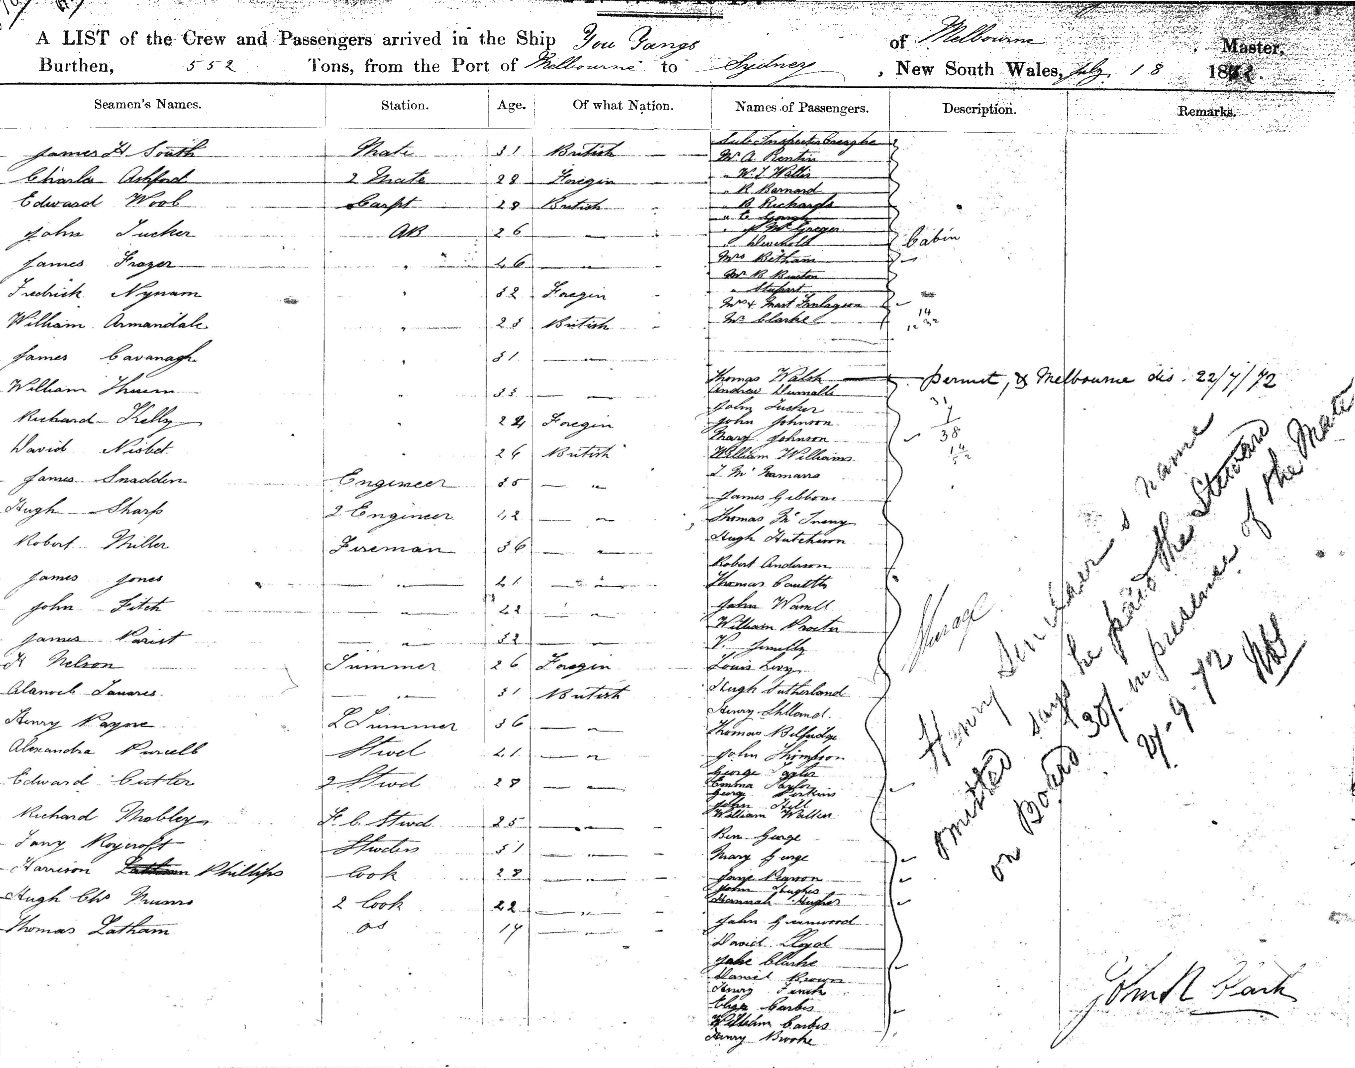 A LIST of the Crew and Passengers arrived in the Ship You Yangs of Melbourne Master,
Burthen, 552 Tons, from the Port of Melbourne to Sydney, New South Wales, July 18 187
Seamen's Names. Station. Age. Of what Nation. Names of Passengers. Description. Remarks.
James H South Mate 31 British
Charles Ashford 2 Mate 28 Foregin
Edward Woob Carpt 28 British
John Tucker AB 26 — " —
James Frazer " 46 — " —
Fredrick Nynam " 32 Foregin
William Armandale " 23 British
James Cavanagh " 31 — " —
William " 33 — " —
Richard Kelly " 24 Foregin
David Nisbet " 26 British
James Snadden Engineer 35 — " —
Hugh Sharp 2 Engineer 42 — " —
Robert Miller Fireman 36 — " —
James Jones — " — 41 — " —
John Fitch — " — 42 — " —
James — " — 32 — " —
H Nelson Trimmer 26 Foregin
Tavares — " — 31 British
Henry Payne Trimmer 36 — " —
Alexandra Purcell Stwd 41 — " —
Edward Cutler 2 Stwd 28 — " —
Richard Mobley F. C. Stwd 25 — " —
Roycroft 31 — " —
Harrison Phillips Cook 28 — " —
Hugh Chs Munro 2 Cook 22 — " —
Thomas Latham OS 17 — " —
Sub Inspector Creaghe
Mr A Rentin
" W I Wallis
" R Barnard
" B Richards
" E Gough
" J McGregor
"
Mrs Betham
Mr B Buxton
" Stupart
Mrs & Mast Finlayson
Mr Clarke
Cabin
14
Thomas Walsh — permit, & Melbourne dis. 22/7/72
Andrew
John Tucker
John Johnson
Mary Johnson
William Williams
T McNamara
James Gibbons
Thomas
Hugh Hutchison
Robert Anderson
Thomas
John
William Procter
Louis Levy
Hugh Sutherland
Henry
Thomas Belfridge
John Thompson
George Taylor
Emma Taylor
George Perkins
John Hill
William Walker
Ben George
Mary George
Jane Pearson
John Hughes
Hannah Hughes
John Greenwood
David Lloyd
Clarke
Daniel Brown
Henry Finch
Eliza Carbis
William Carbis
Henry Brooke
31
7
38
Henry Sinclaer's name
omitted says he paid the Steward
on Board 30/- in presence of the Mate
9.72
John N Clark